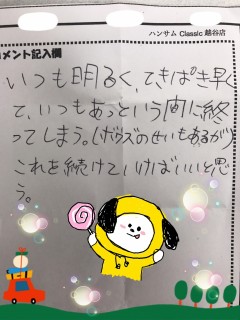 ハンサム Classic 越谷店
コメント記入欄
いつも明るく、てきぱき早く
て、いつもあっという間に終
ってしまう。(ボウズのせいもあるが)
これを続けていけばいいと思
う。